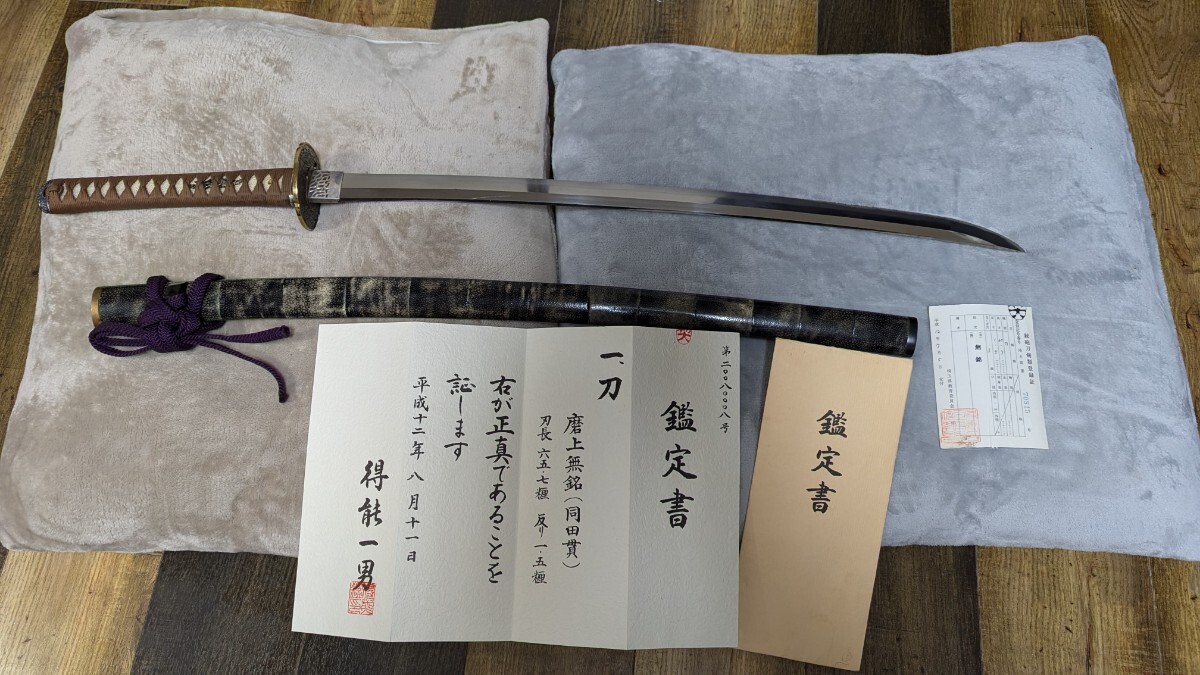 第二〇〇八〇〇〇八号
鑑定書
一、刀
磨上無銘(同田貫)
刃長 六五・七糎 反り 一・五糎
右が正真であることを
証します
平成十二年 八月十一日
得能一男
鑑定書
銃砲刀剣類登録証
無銘